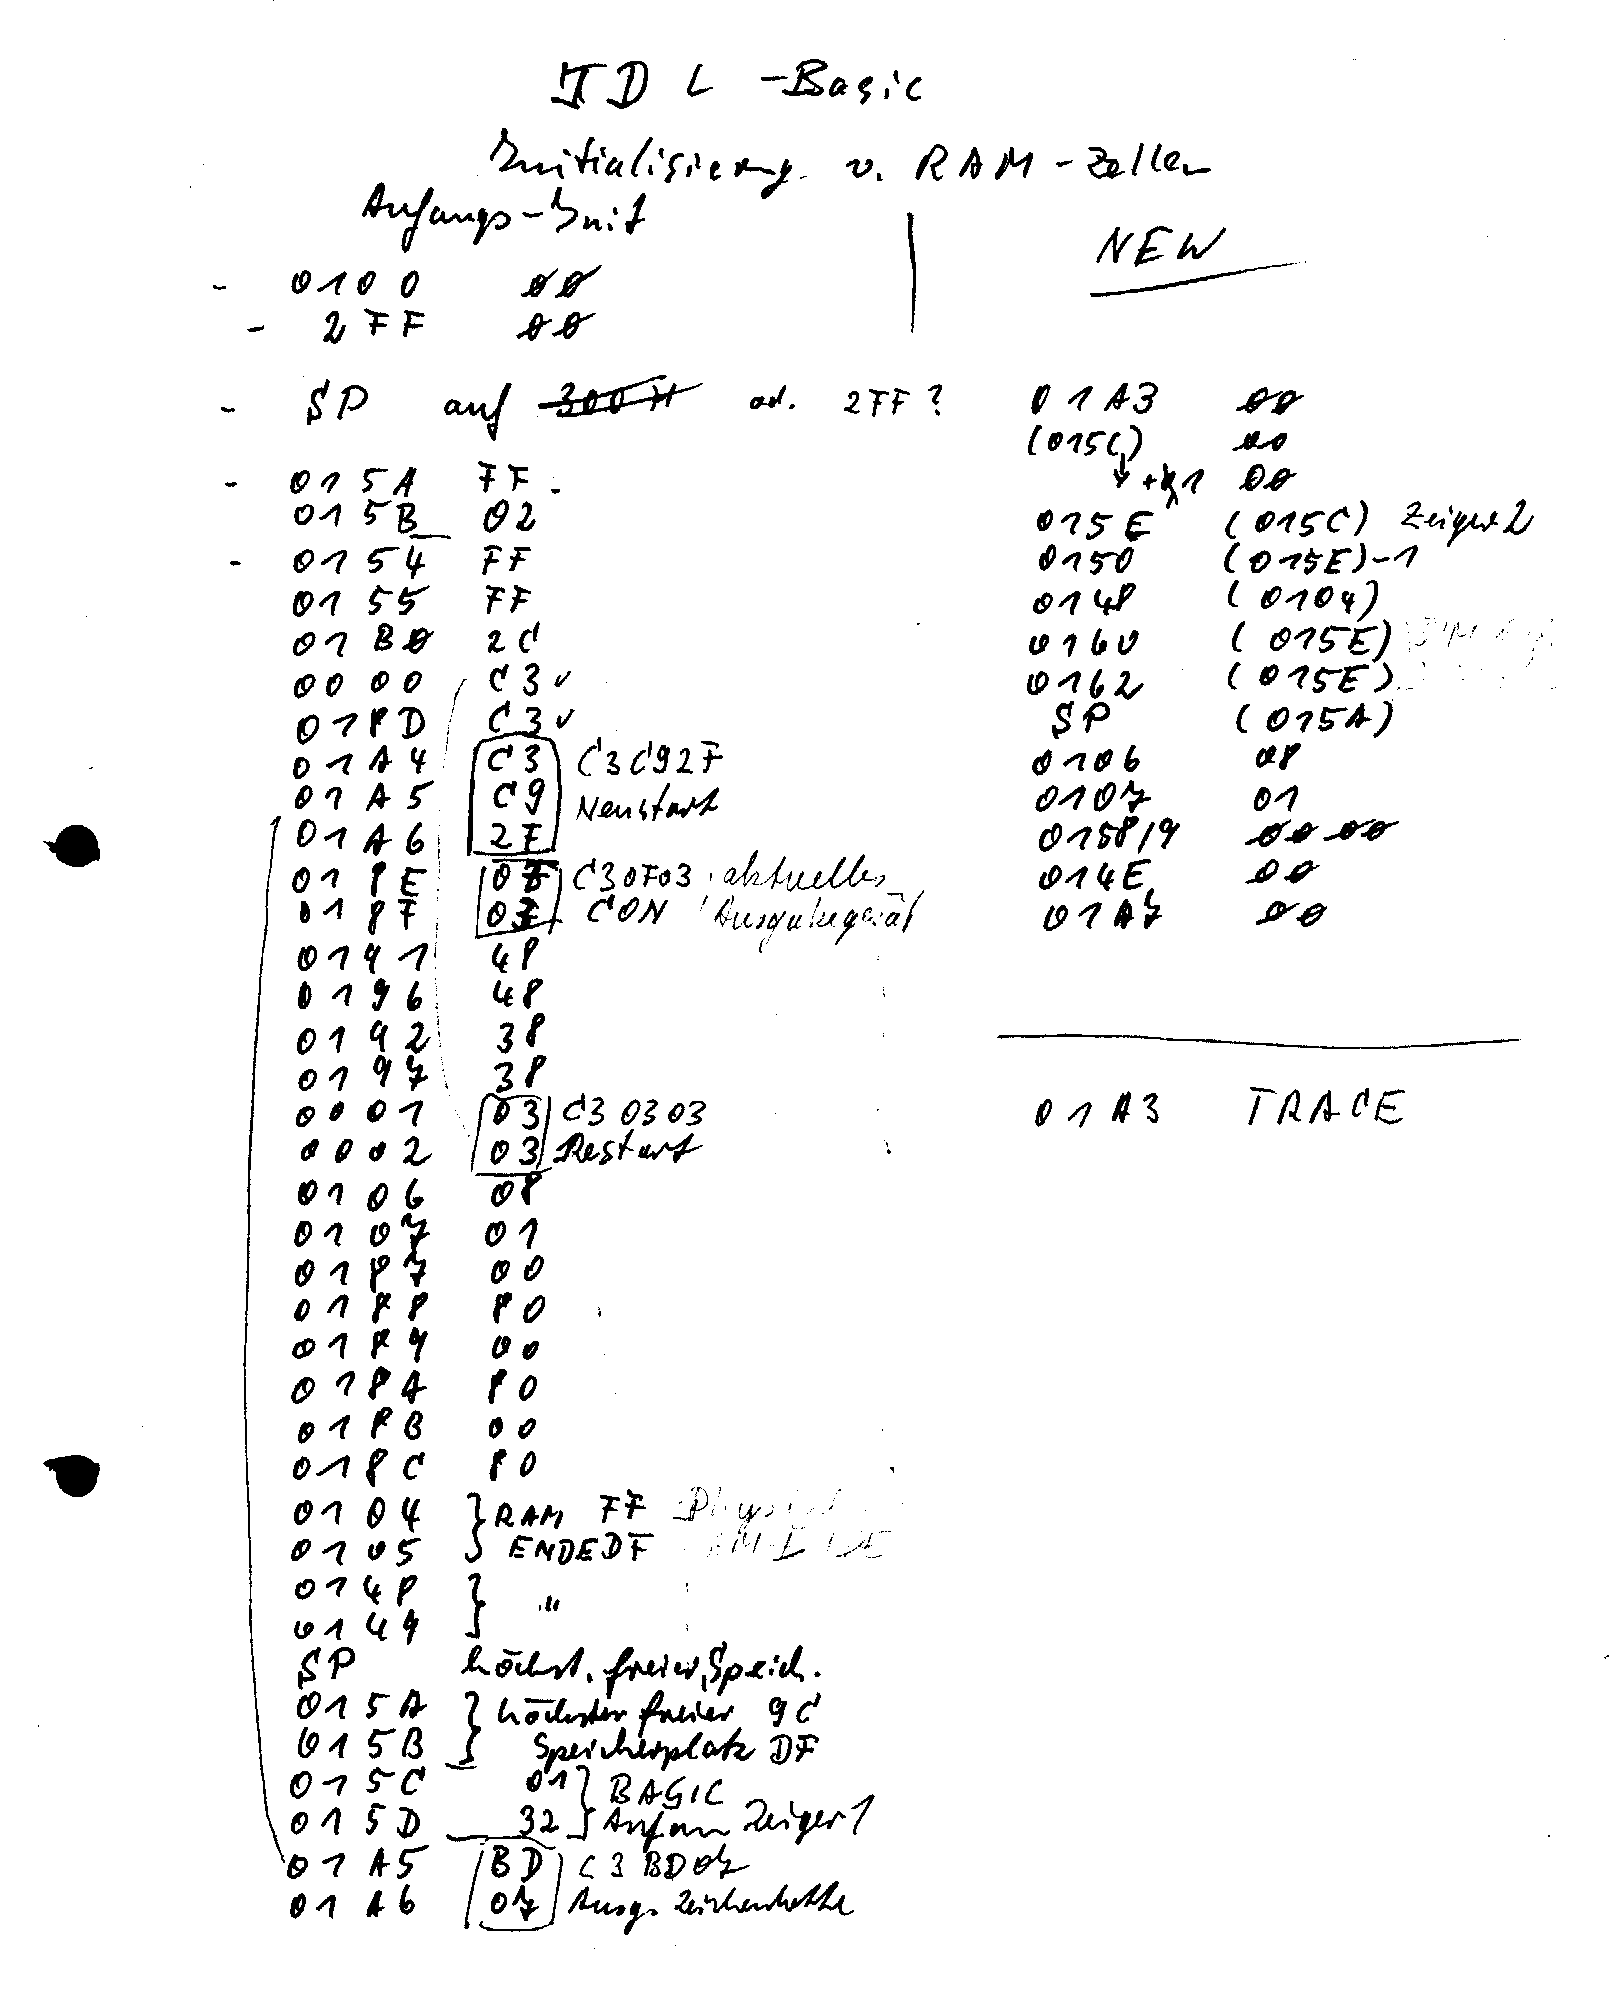 TDL-Basic
Initialisierung v. RAM-Zellen
Anfangs-Init
0100 00
2FF 00
SP auf 300H od. 2FF?
015A FF
015B 02
0154 FF
0155 FF
01B0 2C
0000 C3
018D C3
01A4 C3 C3C92F
01A5 C9 Neustart
01A6 2F
018E C30F03 aktuelles
018F CON Ausgabegerät
0191 48
0196 48
0192 38
0197 38
0001 03 C3 0303
0002 03 Restart
0106 08
0107 01
0187 00
0188 80
0189 00
018A 80
018B 00
018C 80
0104 } RAM FF
0105 ENDE DF
0148 } "
0149
SP höchst. freier Speich.
015A } höchster freier 9C
015B Speicherplatz DF
015C 01 } BASIC
015D 32 Anfan Zeiger 1
01A5 BD C3 BD07
01A6 07 Ausg. Zeichenkette
NEW
01A3 00
(015C) 00
+1 00
015E (015C) Zeiger 2
0150 (015E)-1
0148 (0104)
0160 (015E)
0162 (015E)
SP (015A)
0106 08
0107 01
0158/9 00 00
014E 00
01A7 00
01A3 TRACE